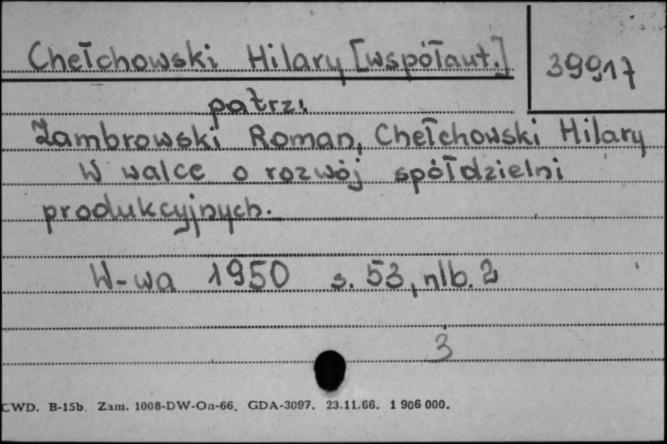 Chełchowski Hilary [współaut.]
39917
patrz:
Zambrowski Roman, Chełchowski Hilary
W walce o rozwój spółdzielni
produkcyjnych.
W-wa 1950 s. 53, nlb. 2
3
CWD. B-15b. Zam. 1008-DW-On-66. GDA-3097. 23.11.66. 1 906 000.